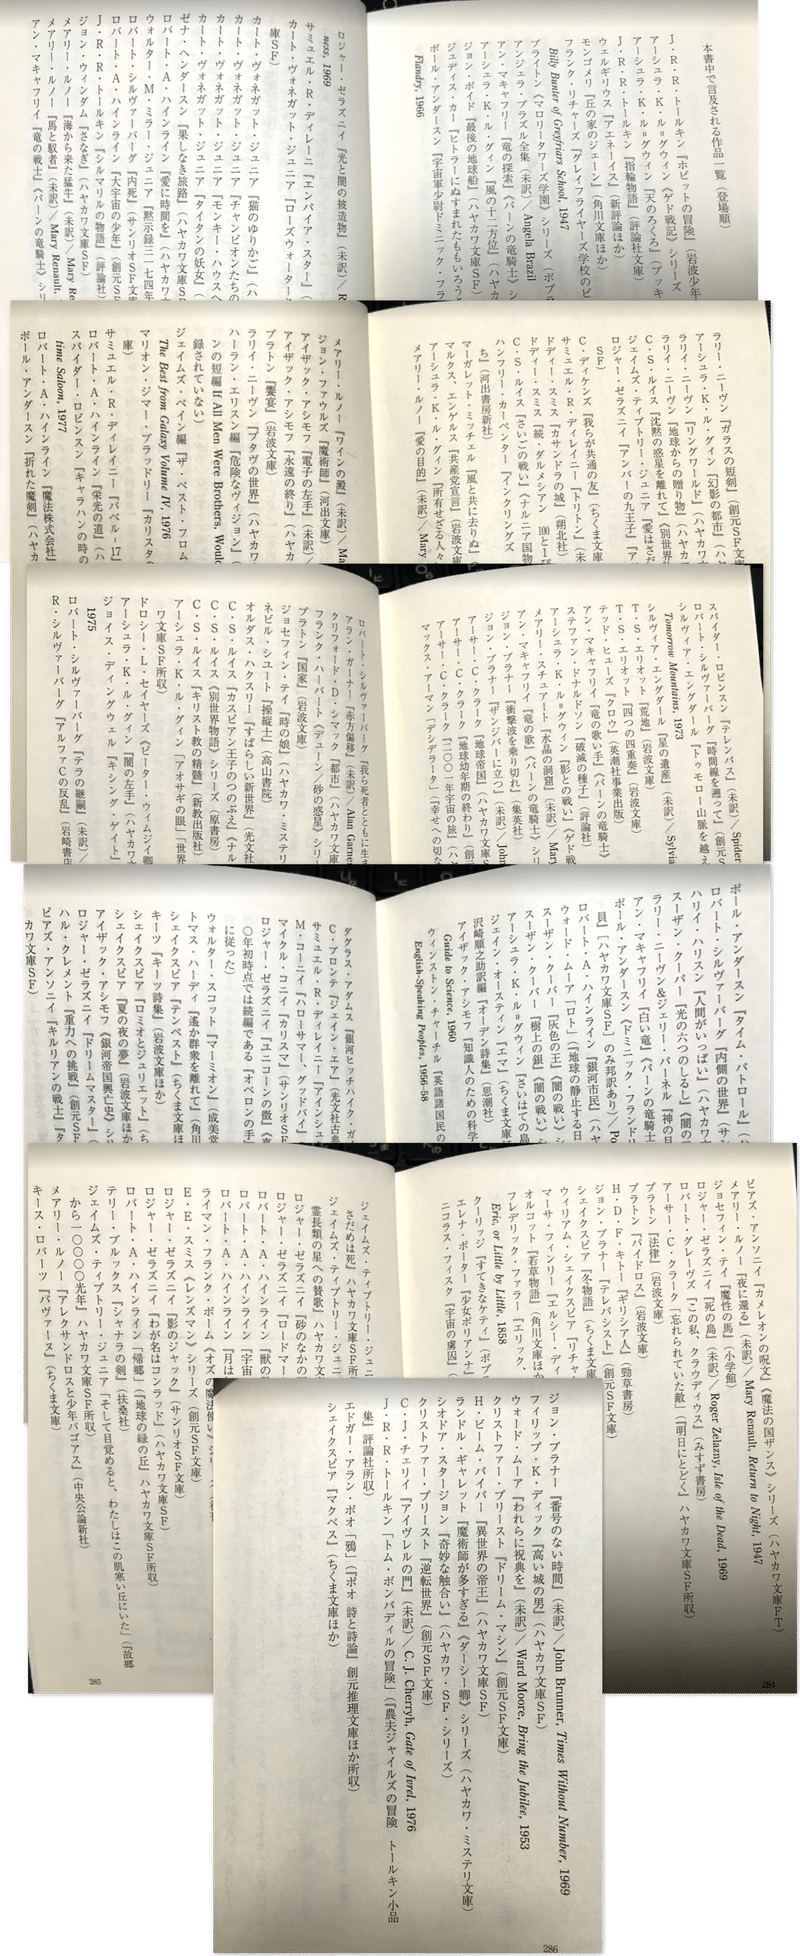 本書中で言及される作品一覧（登場順）
J・R・R・トールキン『ホビットの冒険』（岩波少年
アーシュラ・K・ル＝グウィン『天のろくろ』（ブッキ
アーシュラ・K・ル＝グウィン《ゲド戦記》シリーズ
J・R・R・トールキン『指輪物語』（評論社文庫
ウェルギリウス『アエネーイス』（新評論ほか）
モンゴメリ『丘の家のジェーン』（角川文庫ほか）
フランク・リチャーズ『グレイフライヤーズ学校のビ
Billy Bunter of Greyfriars School, 1947
ブライトン《マロリータワーズ学園》シリーズ（ポプラ
アンジェラ・ブラズル全集（未訳）／Angela Brazil
アン・マキャフリー『竜の探索』《パーンの竜騎士》シ
アーシュラ・K・ル・グィン『風の十二方位』（ハヤカ
ジョン・ボイド『最後の地球船』（ハヤカワ文庫SF）
ジュディス・カー『ヒトラーにぬすまれたももいろう
ポール・アンダースン『宇宙軍少尉ドミニック・フラ
Flandry, 1966
ロジャー・ゼラズニイ『光と闇の被造物』（未訳）／R
ness, 1969
サミュエル・R・ディレーニ『エンパイア・スター』（
カート・ヴォネガット・ジュニア『ローズウォーター
庫SF）
カート・ヴォネガット・ジュニア『猫のゆりかご』（ハ
カート・ヴォネガット・ジュニア『チャンピオンたちの
カート・ヴォネガット・ジュニア『モンキー・ハウスへ
カート・ヴォネガット・ジュニア『タイタンの妖女』（
ゼナ・ヘンダースン『果しなき旅路』（ハヤカワ文庫S
ロバート・A・ハインライン『愛に時間を』（ハヤカワ
ウォルター・M・ミラー・ジュニア『黙示録三一七四年
ロバート・シルヴァーバーグ『内死』（サンリオSF文庫
ロバート・A・ハインライン『大宇宙の少年』（創元S
J・R・R・トールキン『シルマリルの物語』（評論社）
ジョン・ウィンダム『さなぎ』（ハヤカワ文庫SF）
メアリー・ルノー『海から来た猛牛』（未訳）／Mary Re
メアリー・ルノー『馬と馭者』（未訳）／Mary Renault,
アン・マキャフリイ『竜の戦士』《パーンの竜騎士》シリ
ラリー・ニーヴン『ガラスの短剣』（創元SF文庫
アーシュラ・K・ル・グィン『幻影の都市』（ハヤ
ラリイ・ニーヴン『リングワールド』（ハヤカワ文
ラリイ・ニーヴン『地球からの贈り物』（ハヤカワ
C・S・ルイス『沈黙の惑星を離れて』《別世界
ジェイムズ・ティプトリー・ジュニア『愛はさだ
ロジャー・ゼラズニイ『アンバーの九王子』『ア
SF）
C・ディケンズ『我らが共通の友』（ちくま文庫
サミュエル・R・ディレイニー『トリトン』（未
ドディー・スミス『カサンドラの城』（朔北社）
ドディー・スミス『続・ダルメシアン　100と1ぴ
C・S・ルイス『さいごの戦い』《ナルニア国物
ハンフリー・カーペンター『インクリングズ
ち』（河出書房新社）
マーガレット・ミッチェル『風と共に去りぬ』
マルクス、エンゲルス『共産党宣言』（岩波文庫
アーシュラ・K・ル・グィン『所有せざる人々
メアリー・ルノー『愛の目的』（未訳）／Mary
メアリー・ルノー『ワインの澱』（未訳）／Ma
ジョン・ファウルズ『魔術師』（河出文庫）
アイザック・アシモフ『電子の左手』（未訳）／
アイザック・アシモフ『永遠の終り』（ハヤカ
プラトン『饗宴』（岩波文庫）
ラリイ・ニーヴン『プタヴの世界』（ハヤカワ
ハーラン・エリスン編『危険なヴィジョン』（
ンの短編 If All Men Were Brothers, Would
録されていない）
ジェイムズ・ベイン編『ザ・ベスト・フロム
The Best from Galaxy Volume IV, 1976
マリオン・ジマー・ブラッドリー『カリスタの
庫）
サミュエル・R・ディレイニー『バベル−17』
ロバート・A・ハインライン『栄光の道』（ハ
スパイダー・ロビンスン『キャラハンの時の
time Saloon, 1977
ロバート・A・ハインライン『魔法株式会社』
ポール・アンダースン『折れた魔剣』（ハヤカ
スパイダー・ロビンスン『テレンパス』（未訳）／Spider
ロバート・シルヴァーバーグ『時間線を遡って』（創元S
シルヴィア・エングダール『トゥモロー山脈を越え
Tomorrow Mountains, 1973
シルヴィア・エングダール『星の遺産』（未訳）／Sylvia
T・S・エリオット『荒地』（岩波文庫）
T・S・エリオット『四つの四重奏』（岩波文庫）
テッド・ヒューズ『クロウ』（英潮社事業出版）
アン・マキャフリイ『竜の歌い手』《パーンの竜騎士》
ステファン・ドナルドソン『破滅の種子』（評論社）
アーシュラ・K・ル＝グウィン『影との戦い』《ゲド戦
メアリー・スチュアート『水晶の洞窟』（未訳）／Mary
アン・マキャフリイ『竜の歌』《パーンの竜騎士》シリ
ジョン・ブラナー『衝撃波を乗り切れ』（集英社）
ジョン・ブラナー『ザンジバーに立つ』（未訳）／John
アーサー・C・クラーク『地球帝国』（ハヤカワ文庫S
アーサー・C・クラーク『地球幼年期の終わり』（創元
アーサー・C・クラーク『二〇〇一年宇宙の旅』（ハヤ
マックス・アーマン「デシデラータ」（『幸せへの切な
ロバート・シルヴァーバーグ『我ら死者とともに生ま
アラン・ガーナー『赤方偏移』（未訳）／Alan Garner
クリフォード・D・シマック『都市』（ハヤカワ文庫
フランク・ハーバート《デューン／砂の惑星》シリ
プラトン『国家』（岩波文庫）
ジョセフィン・テイ『時の娘』（ハヤカワ・ミステリ
ネビル・シュート『操縦士』（高山書院）
オルダス・ハクスリー『すばらしい新世界』（光文社
C・S・ルイス『カスピアン王子のつのぶえ』《ナル
C・S・ルイス《別世界物語》シリーズ（原書房）
C・S・ルイス『キリスト教の精髄』（新教出版社）
アーシュラ・K・ル・グィン「アオサギの眼」（『世界
ワ文庫SF所収）
ドロシー・L・セイヤーズ《ピーター・ウィムジイ卿
アーシュラ・K・ル・グィン『闇の左手』（ハヤカワ
ジョイス・ディングウェル『キシング・ゲイト』（
1975
ロバート・シルヴァーバーグ『テラの継嗣』（未訳）／
R・シルヴァーバーグ『アルファCの反乱』（岩崎書店
ポール・アンダースン『タイム・パトロール』（ハ
ロバート・シルヴァーバーグ『内側の世界』（サン
ハリイ・ハリスン『人間がいっぱい』（ハヤカワ文
スーザン・クーパー『光の六つのしるし』《闇の
ラリー・ニーヴン&ジェリー・パーネル『神の目
アン・マキャフリイ『白い竜』《パーンの竜騎士
ポール・アンダースン《ドミニック・フランドリ
員』（ハヤカワ文庫SF）のみ邦訳あり）／Po
ロバート・A・ハインライン『銀河市民』（ハヤ
ウォード・ムーア「ロト」（『地球の静止する日
スーザン・クーパー『灰色の王』《闇の戦い》シ
スーザン・クーパー『樹上の銀』《闇の戦い》シ
アーシュラ・K・ル＝グウィン『さいはての島
ジェイン・オースティン『エマ』（ちくま文庫ほ
沢崎順之助訳編『オーデン詩集』（思潮社）
アイザック・アシモフ『知識人のための科学
Guide to Science, 1960
ウィンストン・チャーチル『英語諸国民の
English-Speaking Peoples, 1956-58
ダグラス・アダムス『銀河ヒッチハイク・ガ
C・ブロンテ『ジェイン・エア』（光文社古典
サミュエル・R・ディレイニー『アインシュ
M・コーニイ『ハローサマー、グッドバイ』
マイクル・コニイ『カリスマ』（サンリオSF
ロジャー・ゼラズニイ『ユニコーンの徴』《真
〇年初時点では続編である『オベロンの手
に従った）
ウォルター・スコット『マーミオン』（成美堂
トマス・ハーディ『遥か群衆を離れて』（角川
シェイクスピア『テンペスト』（ちくま文庫
キーツ『キーツ詩集』（岩波文庫ほか）
シェイクスピア『ロミオとジュリエット』（ち
シェイクスピア『夏の夜の夢』（岩波文庫ほか
アイザック・アシモフ《銀河帝国興亡史》シリ
ロジャー・ゼラズニイ『ドリームマスター』（
ハル・クレメント『重力への挑戦』（創元SF
ピアズ・アンソニイ『キルリアンの戦士』『タ
カワ文庫SF）
ピアズ・アンソニイ『カメレオンの呪文』《魔法の国ザンス》シリーズ（ハヤカワ文庫FT）
メアリー・ルノー『夜に還る』（未訳）／Mary Renault, Return to Night, 1947
ジョセフィン・テイ『魔性の馬』（小学館）
ロジャー・ゼラズニイ『死の島』（未訳）／Roger Zelazny, Isle of the Dead, 1969
ロバート・グレーヴズ『この私、クラウディウス』（みすず書房）
アーサー・C・クラーク「忘れられていた敵」（『明日にとどく』ハヤカワ文庫SF所収）
プラトン『法律』（岩波文庫）
プラトン『パイドロス』（岩波文庫）
H・D・F・キトー『ギリシア人』（勁草書房）
ジョン・ブラナー『テレパシスト』（創元SF文庫）
シェイクスピア『冬物語』（ちくま文庫
ウィリアム・シェイクスピア『リチャー
マーサ・フィンリー『エルシー・ディ
オルコット『若草物語』（角川文庫ほか
フレデリック・ファラー『エリック、
Eric, or Little by Little, 1858
クーリッジ『すてきなケティ』（ポプ
エレナ・ポーター『少女ポリアンナ』
ニコラス・フィスク『宇宙の虜囚』（
284
ジェイムズ・ティプトリー・ジュニ
さだめは死』ハヤカワ文庫SF所
ジェイムズ・ティプトリー・ジュニ
霊長類の星への賛歌』ハヤカワ文
ロジャー・ゼラズニイ『砂のなかの
ロジャー・ゼラズニイ『ロードマー
ロバート・A・ハインライン『獣の
ロバート・A・ハインライン『宇宙
ロバート・A・ハインライン『月は
ライマン・フランク・ボーム《オズの魔法使い》シリーズ
E・E・スミス《レンズマン》シリーズ（創元SF文庫）
ロジャー・ゼラズニイ『影のジャック』（サンリオSF文庫）
ロジャー・ゼラズニイ『わが名はコンラッド』（ハヤカワ文庫SF）
ロバート・A・ハインライン「帰郷」（『地球の緑の丘』ハヤカワ文庫SF所収）
テリー・ブルックス『シャナラの剣』（扶桑社）
ジェイムズ・ティプトリー・ジュニア「そして目覚めると、わたしはこの肌寒い丘にいた」（『故郷
から一〇〇〇〇光年』ハヤカワ文庫SF所収）
メアリー・ルノー『アレクサンドロスと少年バゴアス』（中央公論新社）
キース・ロバーツ『パヴァーヌ』（ちくま文庫）
285
ジョン・ブラナー『番号のない時間』（未訳）／John Brunner, Times Without Number, 1969
フィリップ・K・ディック『高い城の男』（ハヤカワ文庫SF）
ウォード・ムーア『われらに祝典を』（未訳）／Ward Moore, Bring the Jubilee, 1953
クリストファー・プリースト『ドリーム・マシン』（創元SF文庫）
H・ビーム・パイパー『異世界の帝王』（ハヤカワ文庫SF）
ランドル・ギャレット『魔術師が多すぎる』《ダーシー卿》シリーズ（ハヤカワ・ミステリ文庫）
シオドア・スタージョン『奇妙な触合い』（ハヤカワ・SF・シリーズ）
クリストファー・プリースト『逆転世界』（創元SF文庫）
C・J・チェリイ『アイヴレルの門』（未訳）／C. J. Cherryh, Gate of Ivrel, 1976
J・R・R・トールキン「トム・ボンバディルの冒険」（『農夫ジャイルズの冒険　トールキン小品
集』評論社所収）
エドガー・アラン・ポオ「鴉」（『ポオ 詩と詩論』創元推理文庫ほか所収）
シェイクスピア『マクベス』（ちくま文庫ほか）
286